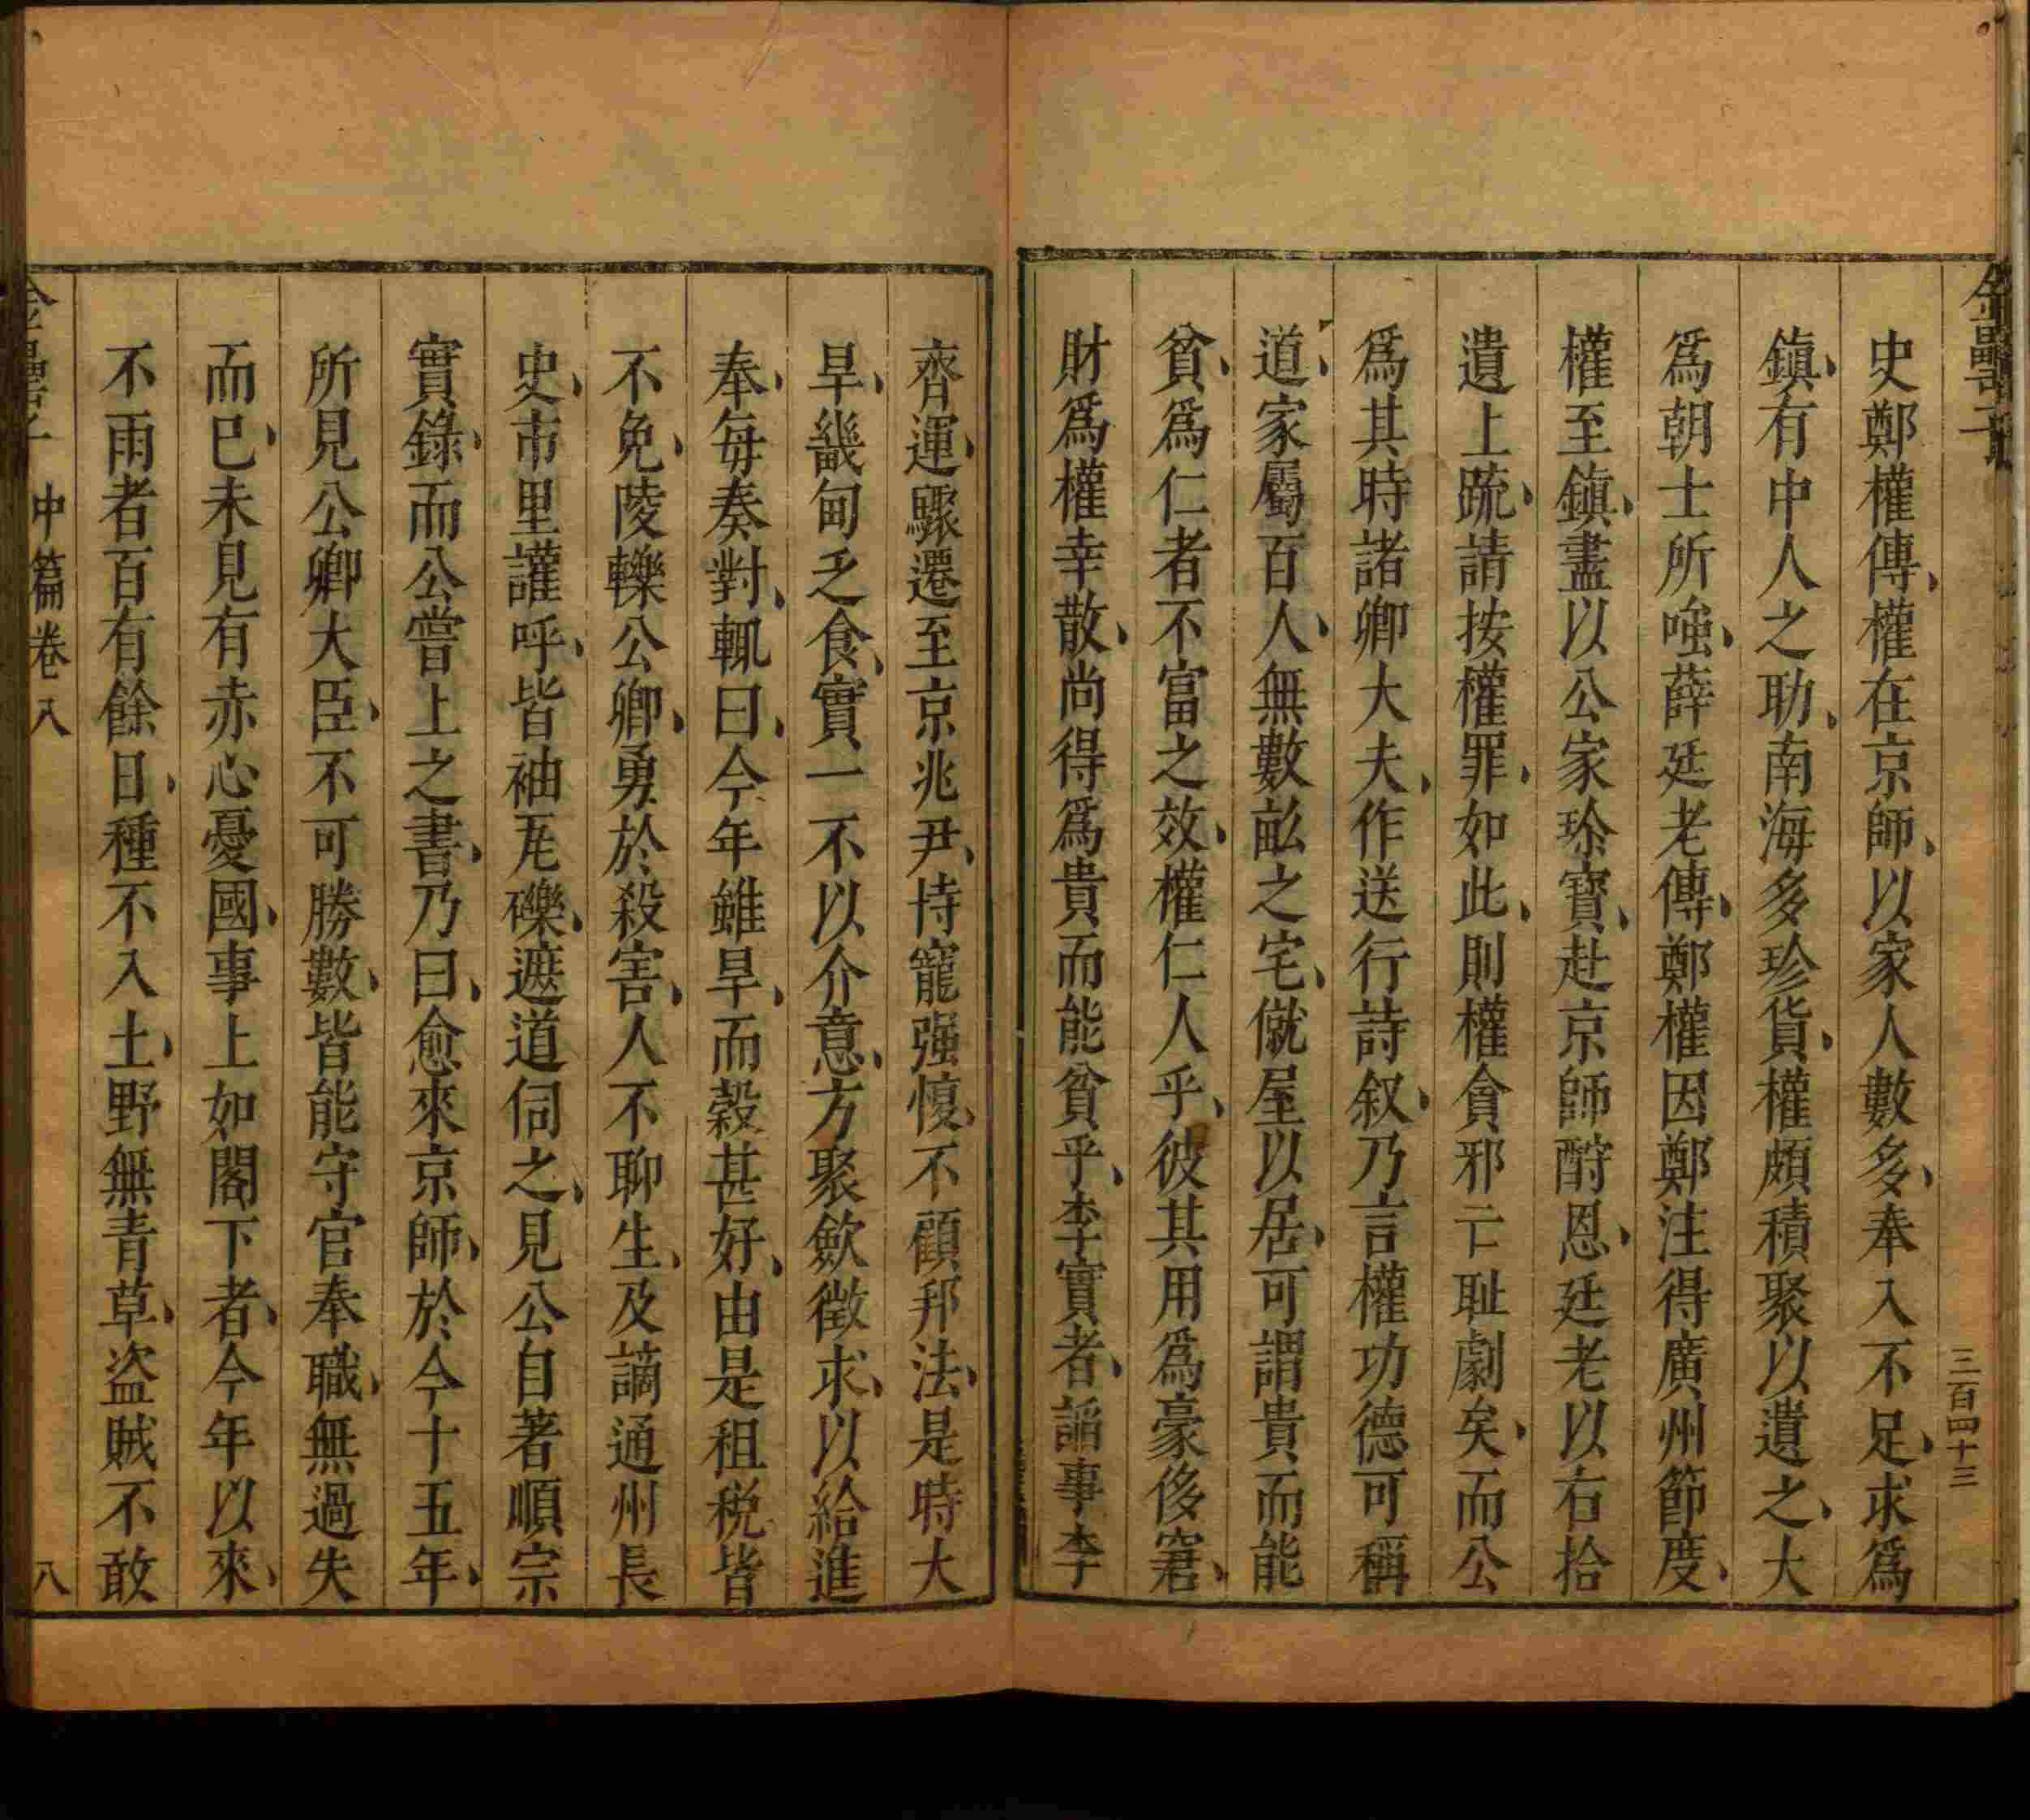 三百四十三
史鄭權傳、權在京師、以家人數多、奉入不足、求爲
鎮、有中人之助、南海多珍貨、權頗積聚以遺之、大
爲朝士所嗤、薛廷老傳、鄭權因鄭注得廣州節度、
權至鎮、盡以公家珍寳、赴京師酧恩、廷老以右拾
遺上疏、請按權罪、如此、則權貪邪亡耻劇矣、而公
爲其時諸卿大夫、作送行詩叙、乃言權功德可稱
道、家屬百人、無數畝之宅、僦屋以居、可謂貴而能
貧、爲仁者不富之效、權仁人乎、彼其用爲豪侈窘、
財爲權幸散、尚得爲貴而能貧乎、李實者、謟事李
齊運、驟遷至京兆尹、恃寵强愎、不顧邦法、是時大
旱、畿甸乏食、實一不以介意、方聚歛徵求、以給進
奉、每奏對、輒曰、今年雖旱、而穀甚好、由是租税皆
不免、陵轢公卿、勇於殺害、人不聊生、及謫通州長
史、市里讙呼、皆袖瓦礫、遮道伺之、見公自著順宗
實錄、而公嘗上之書、乃曰、愈來京師、於今十五年、
所見公卿大臣、不可勝數、皆能守官奉職、無過失
而已、未見有赤心憂國、事上如閣下者、今年以來、
不雨者百有餘日、種不入土、野無青草、盗賊不敢
中篇卷八
八